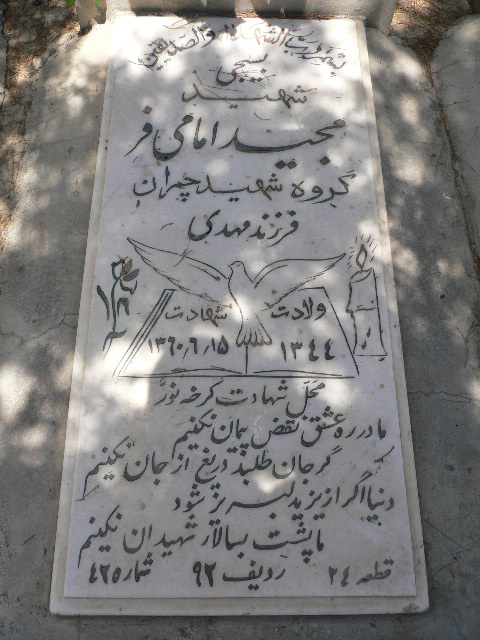 بسم رب الشهداء و الصدیقین
بسیجی
شهید
مجید امامی فر
گروه شهید چمران
فرزند مهدی
ولادت
۱۳۴۴
شهادت
۱۳۶۰/۶/۱۵
محل شهادت کرخه نور
ما در ره عشق نقض پیمان نکنیم
گر جان طلبد دریغ از جان نکنیم
دنیا اگر از یزید لبریز شود
ما پشت بسالار شهیدان نکنیم
قطعه ۲۴ ردیف ۹۲ شماره ۴۲۵